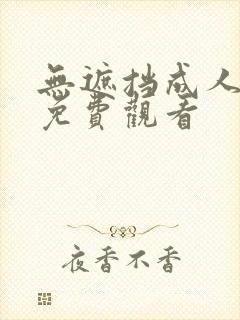 無遮挡成人
免費觀看
夜香不香